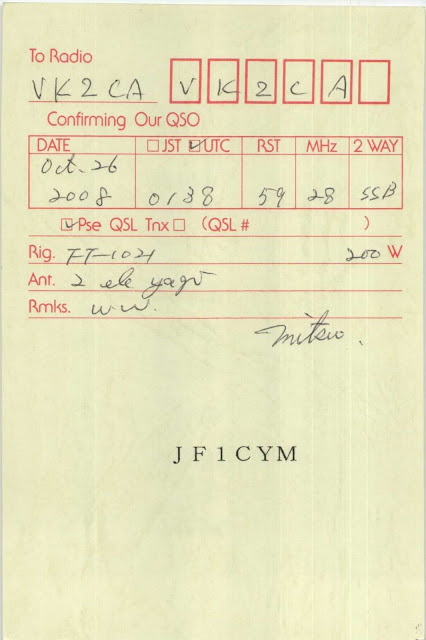 To Radio
VK2CA V K 2 C A
Confirming Our QSO
DATE ☐ JST ☑ UTC RST MHz 2 WAY
Oct. 26
2008 0138 59 28 SSB
☑ Pse QSL Tnx ☐ (QSL # )
Rig. FT-1021 200 W
Ant. 2 ele yagi
Rmks. W.W.
Mitsuo.
JF1CYM